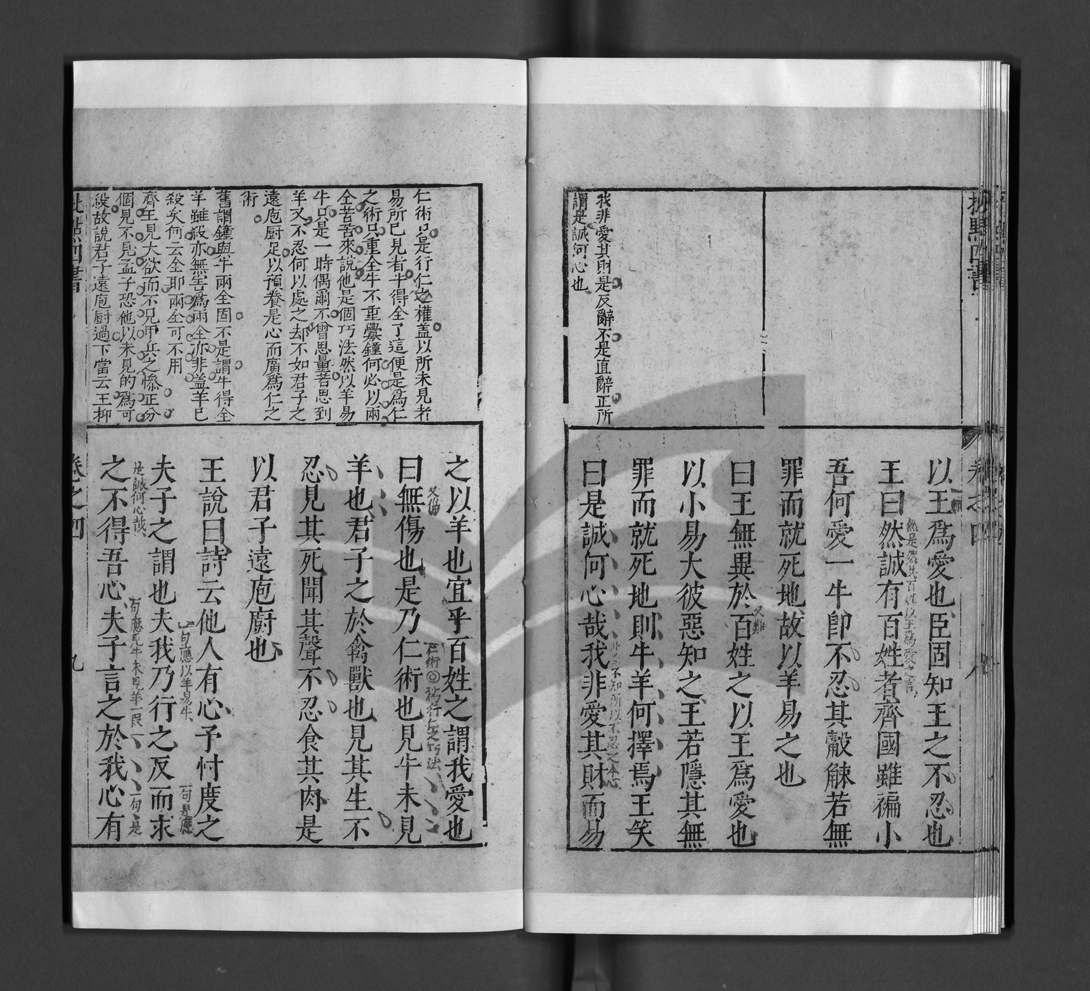 批點四書
卷之四
八
我非愛其財是反辭不是直辭正所
謂是誠何心也
以王爲愛也臣固知王之不忍也
王曰然誠有百姓者齊國雖褊小
吾何愛一牛卽不忍其觳觫若無
罪而就死地故以羊易之也
曰王無異於百姓之以王爲愛也
以小易大彼惡知之王若隱其無
罪而就死地則牛羊何擇焉王笑
曰是誠何心哉我非愛其財而易
仁術只是行仁之權蓋以所未見者
易所已見者牛得全了這便是爲仁
之術只重全牛不重釁鐘何必以兩
全苦苦來說他是個巧法然以羊易
牛只是一時偶爾不曾思量若思到
羊又不忍何以處之却不如君子之
遠庖厨足以預養是心而廣爲仁之
術
舊謂鐘與牛兩全固不是謂牛得全
羊雖殺亦無害爲兩全亦非蓋羊已
殺矣何云全耶兩全可不用
齊王見大欲而不見甲兵之慘正分
個見不見孟子恐他以未見的爲可
殺故說君子遠庖厨過下當云王抑
之以羊也宜乎百姓之謂我愛也
曰無傷也是乃仁術也見牛未見
仁術
羊也君子之於禽獸也見其生不
忍見其死聞其聲不忍食其肉是
以君子遠庖廚也
王說曰詩云他人有心予忖度之
一句應以羊易牛
夫子之謂也夫我乃行之反而求
是誠何心哉
之不得吾心夫子言之於我心有
批點四書
卷之四
九